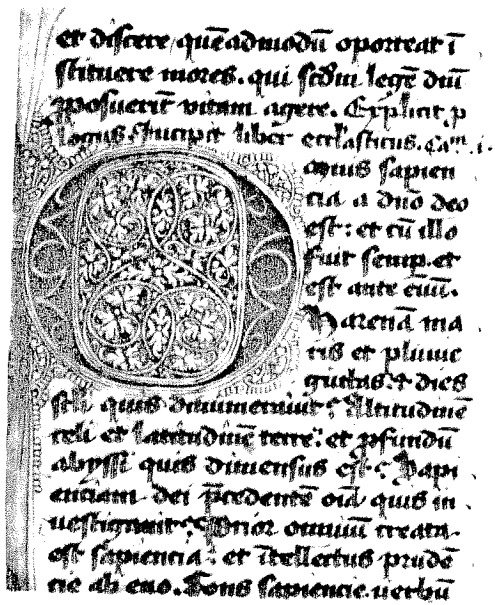 et discere quēadmodū oporteat ī
stituere mores. qui scdm̄ legē dnī
pposuerīt vitam agere. Explicit p
logus. Incipit liber ecclasticus. Cam. i.
Omnis sapien
cia a dno deo
est: et cū illo
fuit semp. et
est ante euū.
Harenā ma
ris et pluuie
guttas & dies
sc̄li quis dinumerauit? Altitudinē
celi et latitudinē terre: et pfundū
abyssi quis dimensus est? Sapi
entiam dei p̄cedentē oīa quis in
uestigauit? Prior omniū creata
est sapiencia: et ītellectus prudē
cie ab euo. Fons sapiencie uerbū